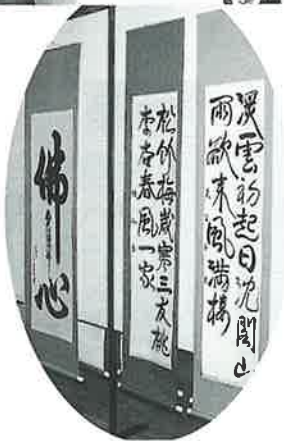 渓雲初起日沈閣山
雨欲来風満楼
松竹梅歳寒三友桃
李杏春風一家
佛心